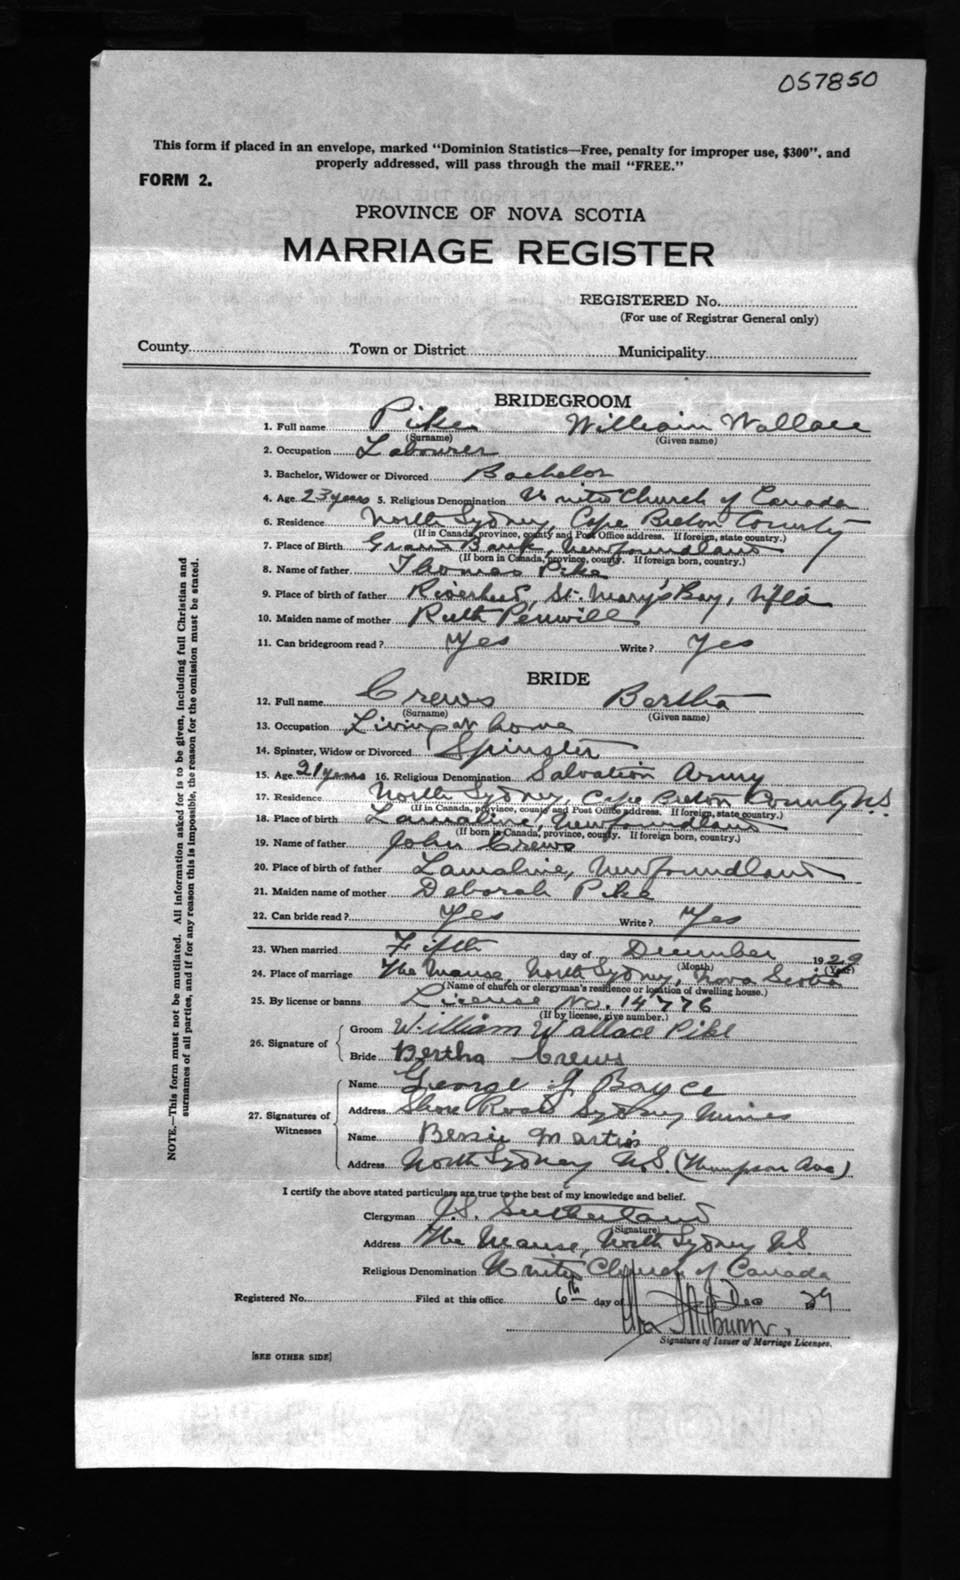 057850
This form if placed in an envelope, marked "Dominion Statistics—Free, penalty for improper use, $300", and
properly addressed, will pass through the mail "FREE."
FORM 2.
PROVINCE OF NOVA SCOTIA
MARRIAGE REGISTER
REGISTERED No.
(For use of Registrar General only)
County Town or District Municipality
BRIDEGROOM
1. Full name Pike William Wallace
(Surname) (Given name)
2. Occupation Labourer
3. Bachelor, Widower or Divorced Bachelor
4. Age 23 years 5. Religious Denomination United Church of Canada
6. Residence North Sydney, Cape Breton County
(If in Canada, province, county and Post Office address. If foreign, state country.)
7. Place of Birth Grand Bank, Newfoundland
(If born in Canada, province, county. If foreign born, country.)
8. Name of father Thomas Pike
9. Place of birth of father Riverhead, St. Mary's Bay, Nfld
10. Maiden name of mother Ruth Penwill
11. Can bridegroom read? Yes Write? Yes
BRIDE
12. Full name Crews Bertha
(Surname) (Given name)
13. Occupation Living at home
14. Spinster, Widow or Divorced Spinster
15. Age 21 years 16. Religious Denomination Salvation Army
17. Residence North Sydney, Cape Breton County N.S.
(If in Canada, province, county and Post Office address. If foreign, state country.)
18. Place of birth Lamaline, Newfoundland
(If born in Canada, province, county. If foreign born, country.)
19. Name of father John Crews
20. Place of birth of father Lamaline, Newfoundland
21. Maiden name of mother Deborah Pike
22. Can bride read? Yes Write? Yes
23. When married Fifth day of December 1929
(Month) (Year)
24. Place of marriage The Manse, North Sydney, Nova Scotia
(Name of church or clergyman's residence or location of dwelling house.)
25. By license or banns License No. 14776
(If by license, give number.)
26. Signature of Groom William Wallace Pike
Bride Bertha Crews
27. Signatures of Witnesses
Name George J Bayce
Address Shore Road Sydney Mines
Name Bessie Martin
Address North Sydney N.S. (Thompson Ave)
I certify the above stated particulars are true to the best of my knowledge and belief.
Clergyman J.S. Sutherland
(Signature)
Address The Manse, North Sydney N.S.
Religious Denomination United Church of Canada
Registered No. Filed at this office 6th day of Dec 29
Signature of Issuer of Marriage Licenses.
[SEE OTHER SIDE]
NOTE.—This form must not be mutilated. All information asked for is to be given, including full Christian and
surnames of all parties, and if for any reason this is impossible, the reason for the omission must be stated.